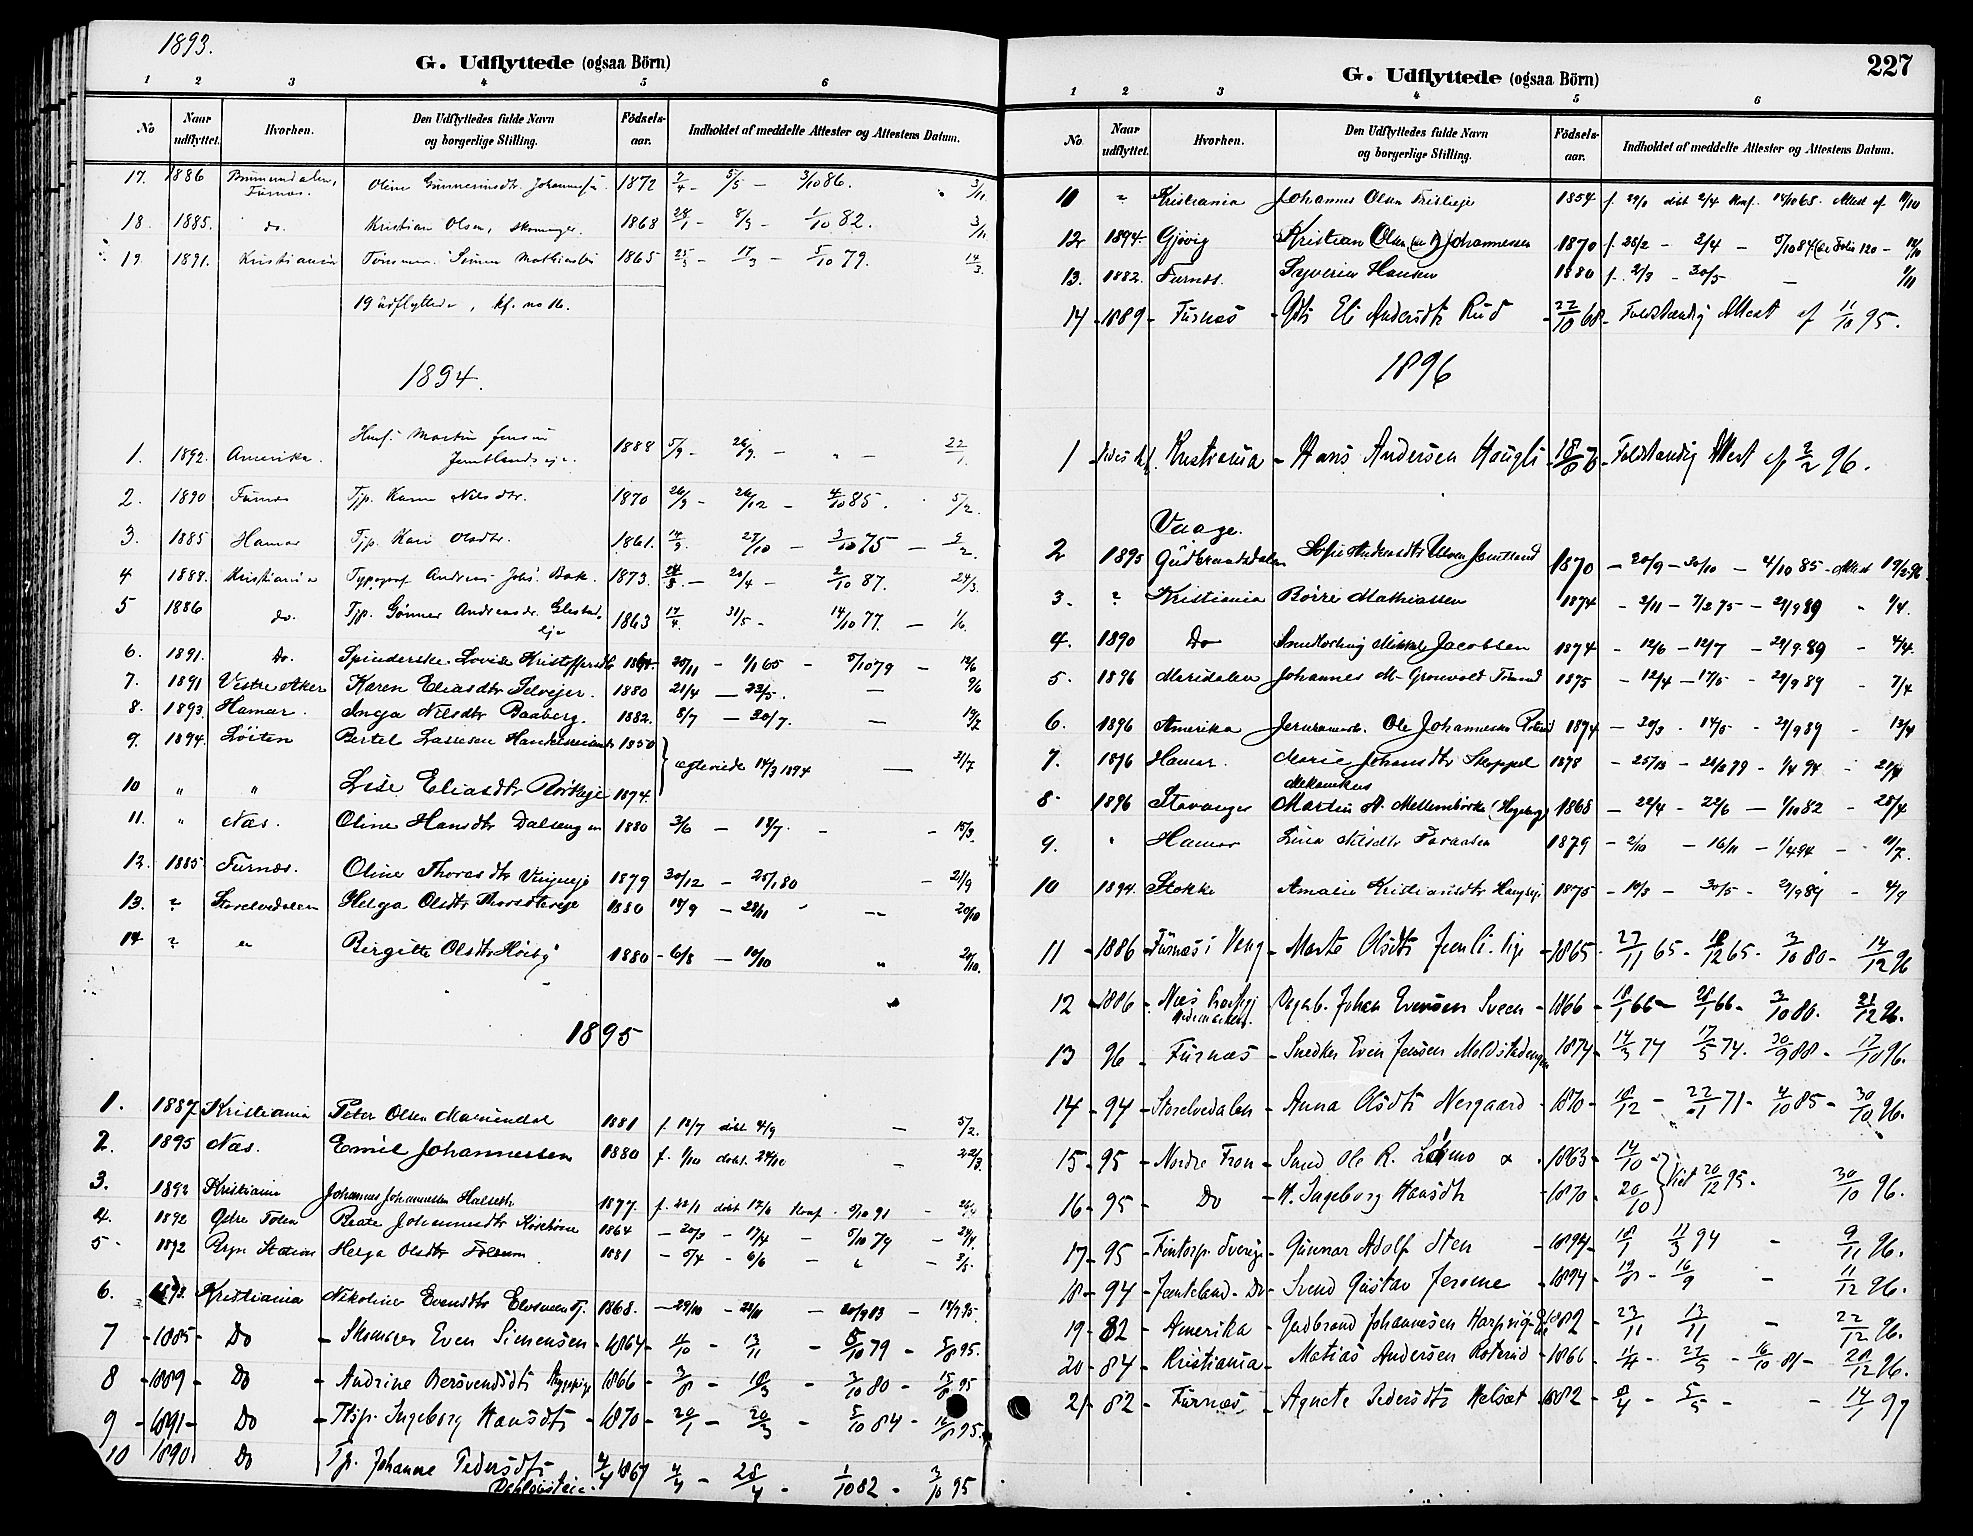 1893.
G. Udflyttede (ogsaa Börn)
1 2 3 4 5 6
No Naar udflyttet. Hvorhen. Den Udflyttedes fulde Navn og borgerlige Stilling. Fødsels-aar. Indholdet af meddelte Attester og Attestens Datum.
17. 1886 Brumundalen, Furnæs. Oline Gunnerinsdtr. 1872 5/5 - 3/10 86. 3/11
18. 1885. do. Kristian Olsen, 1868 28/1 - 8/3 - 1/10 82. 3/11
19. 1891. Kristiania 1865 25/3 - 17/3 - 5/10 79. 14/3.
19 udflyttede, kf. no 16.
1894.
1. 1892. Amerika. Martin Jensen 1888 5/9 - 26/9. - " - 22/1.
2. 1890 Furnæs Tjp. Karen Nilsdtr. 1870 26/3 - 26/12 - 4/10 85. 5/2.
3. 1885 Hamar Tjp. Kari Olsdtr. 1861. 14/9. 27/10 - 3/10 75 - 9/2.
4 1888. Kristiania Typograf Andreas Johs. Bak. 1873. 24/8 - 20/4 - 2/10 87. 24/3.
5 1886 do. Tjp. Gunner Andreasdr. 1863 17/4. 31/5 - 14/10 77. - 1/6.
6. 1891. Do. Spinderske Lovise Kristoffersdtr 25/11 - 1/1 65 - 5/10 79 - 12/6
7. 1891 Vestre Aker Karen Eliasdtr Selvejer. 1880 21/4 - 23/5. - 9/6
8. 1893. Hamar. Inga Nilsdtr Baaberg. 1882. 8/7 - 30/7. - 19/7
9. 1894. Löiten Bertel Lassesen 1850
ægteviede 14/3 1894 - 31/7
10 " " Lise Eliasdtr 1874.
11. " Næs. Oline Hansdtr Dalsengen 1880 3/6 - 18/7. - - 15/3.
12. 1885. Furnæs. Oline Thorasdtr 1879 30/12 - 25/1 80 - 21/9
13. ? Storelvedalen Helga Olsdtr 1880 19/9 - 28/11 - 20/10
14 ? " Birgitte Olsdtr Hösby 1880 - 6/8 - 10/10 " 20/10.
1895
1. 1887 Kristiania Peter Olsen 1881 f. 12/7 döbt 4/9 - 5/2.
2. 1895 Næs. Emil Johannessen 1880 f. 1/10 döbt. 24/10 - 22/3.
3. 1892 Kristiania Johannes Johannessen 1877. f. 22/1 döbt 17/6 Konf. 91 -
4. 1892 Østre Toten Beate Johannesdtr 1864 - 20/3 - 17/4 - 5/10 79 - 24/4.
5 - 1892 Bryn Station Helga Olsdtr 1881 - 5/4 - 6/6 - " - 3/5.
6. 1893. Kristiania Nikoline Evensdtr 1868. - 29/10 - 22/11 - 20/9 83 - 18/9 95.
7 - 1885 - Do - Skomager Even Simensen - 1864 - 4/10 - 13/11 - 5/10 79 - 5/8 95.
8 - 1889 - Do - Andrine Bersvendsdtr 1866 - 3/8 - 18/3 - 3/10 80 - 15/8 95
9 - 1891 - Do - Ingeborg Hansdtr - 1870 - 20/1 - 20/3 - 5/10 84 - 16/8 95.
10 1890 Do Tp. Johanne Pedersdtr 4/4 1867 4/4 - 28/4 - 1/10 82 - 3/10 95
G. Udflyttede (ogsaa Börn) 227
1 2 3 4 5 6
No Naar udflyttet. Hvorhen. Den Udflyttedes fulde Navn og borgerlige Stilling. Fødsels-aar. Indholdet af meddelte Attester og Attestens Datum.
11 " Kristiania Johannes Olsen 1854 f. 29/1 döbt 2/4 Konf. 14/10 65. Attest af 11/10
12. 1894. Gjövig Kristian Olsen Johannessen 1870 f. 28/2 - 2/4 - 5/10 84 (se Folio 120 -
13. 1882. Furnæs. Syverin Hansen 1880 f. 2/3 - 30/5 - 9/11
14 - 1889 - Furnæs - Eli Andersdtr Rud - 22/10 68 - Fuldstændig Attest af 11/10 95.
1896
1 Kristiania - Hans Andersen Haugli 18/10 76 - Fuldstændig Attest af 2/2 96.
2 1895 Vaage. Gudbrandsdalen Sofie Andersdtr 1870 - 20/9 - 30/10 - 4/10 85 - Attest 17/2 96.
3. ? Kristiania Börre Mathiassen 1874 - 2/11 - 7/2 75 - 29/9 89 " 1/4.
4. 1890 Do Mikkel Jacobsen 1874 - 12/6 - 12/7 - 29/9 89 - 4/4.
5. 1896 Maridalen Johannes M. Grönvold 1875 - 12/4 - 17/5 - 29/9 89 - 7/4
6. 1896 Amerika Ole Johannessen 1874 - 20/3 - 14/5 - 29/9 89 - 13/4
7. 1896 Hamar. Marie Johansdtr Skappel 1878 - 25/12 - 23/2 79 - 1/4 94 - 21/4
8. 1896 Stavanger Mekanikus Martin A. 1868 - 22/4 - 22/6 - 1/10 82 - 28/4
9. " Hamar Lina Nilsdtr 1879 - 2/10 - 16/11 - 1/4 94 - 11/7.
10 1894. Stokke Amalie Kristiansdtr 1875 - 10/3 - 30/5 - 29/9 89 - 4/9
11 - 1886 - Furnæs i Vang - Marte Olsdtr - 1865. 27/11 65 - 18/12 65 - 3/10 80 - 14/12 96
12 - 1886 - Næs Præstegj. Hedemarken. Johan Evensen Sveen - 1866 - 18/1 66 - 28/1 66 - 3/10 80. 21/12 96.
13 96 - Furnæs - Snedker Even Jensen 1874 - 14/3 74 17/5 74. 30/9 88 - 17/10 96.
14 - 94 - Storelvedalen - Anna Olsdtr Nergaard - 1870 - 18/12 - 22/1 71 - 4/10 85 - 30/10 96.
15 - 95 - Nordre Fron - Smed Ole R. - 1863 - 14/10 Viet 20/12 95. 30/10 96.
16 - 95 - Do - H. Ingeborg Hansdtr - 1870 - 20/10
17 - 95 - Sverige - Gunnar Adolf Sten - 1894 - 18/1 11/3 94 - 9/11 96.
18 - 94 - Jemteland - Do - Svend Gustav Jerome - 1894 - 19/8 - 16/9 - 11/12 96.
19 - 82 - Amerika - Gudbrand Johannesen 1882 - 23/11 13/11 - 22/12 96.
20 - 84 - Kristiania - Matias Andersen Roterud - 1866 - 11/4 - 27/5 - 16/10 81 - 28/12 96.
21 - 82 - Furnæs - Agnete Pedersdtr 1882 - 8/4 - 5/5 - - 14/1 97